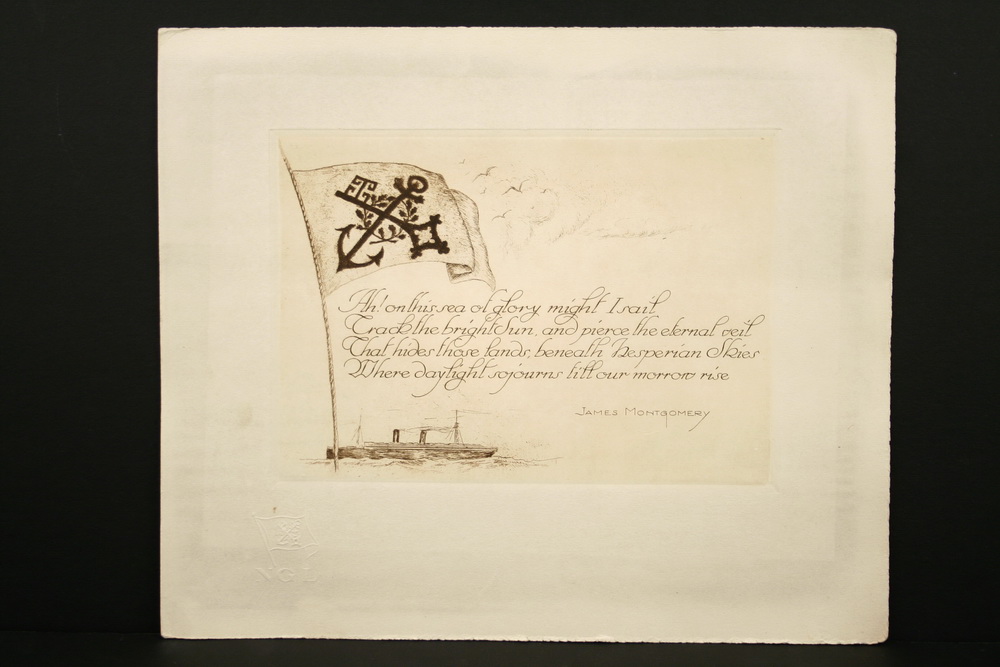 Ah! on this sea of glory might I sail
Track the bright Sun, and pierce the eternal veil
That hides those lands, beneath Hesperian Skies
Where daylight sojourns till our morrow rise
James Montgomery
NGL